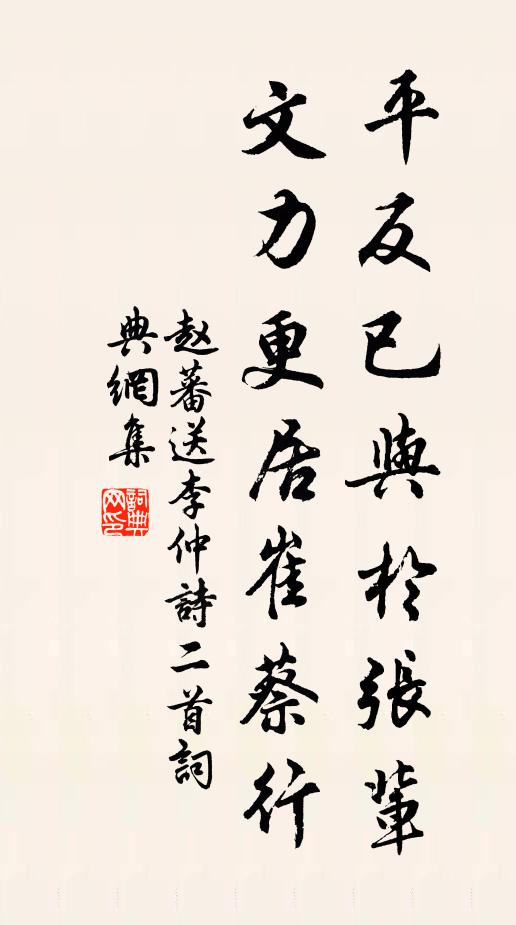 平反已與於張輩
文力更居崔蔡行
赵蕃送李仲詩二首詞
典網集
詞典网印